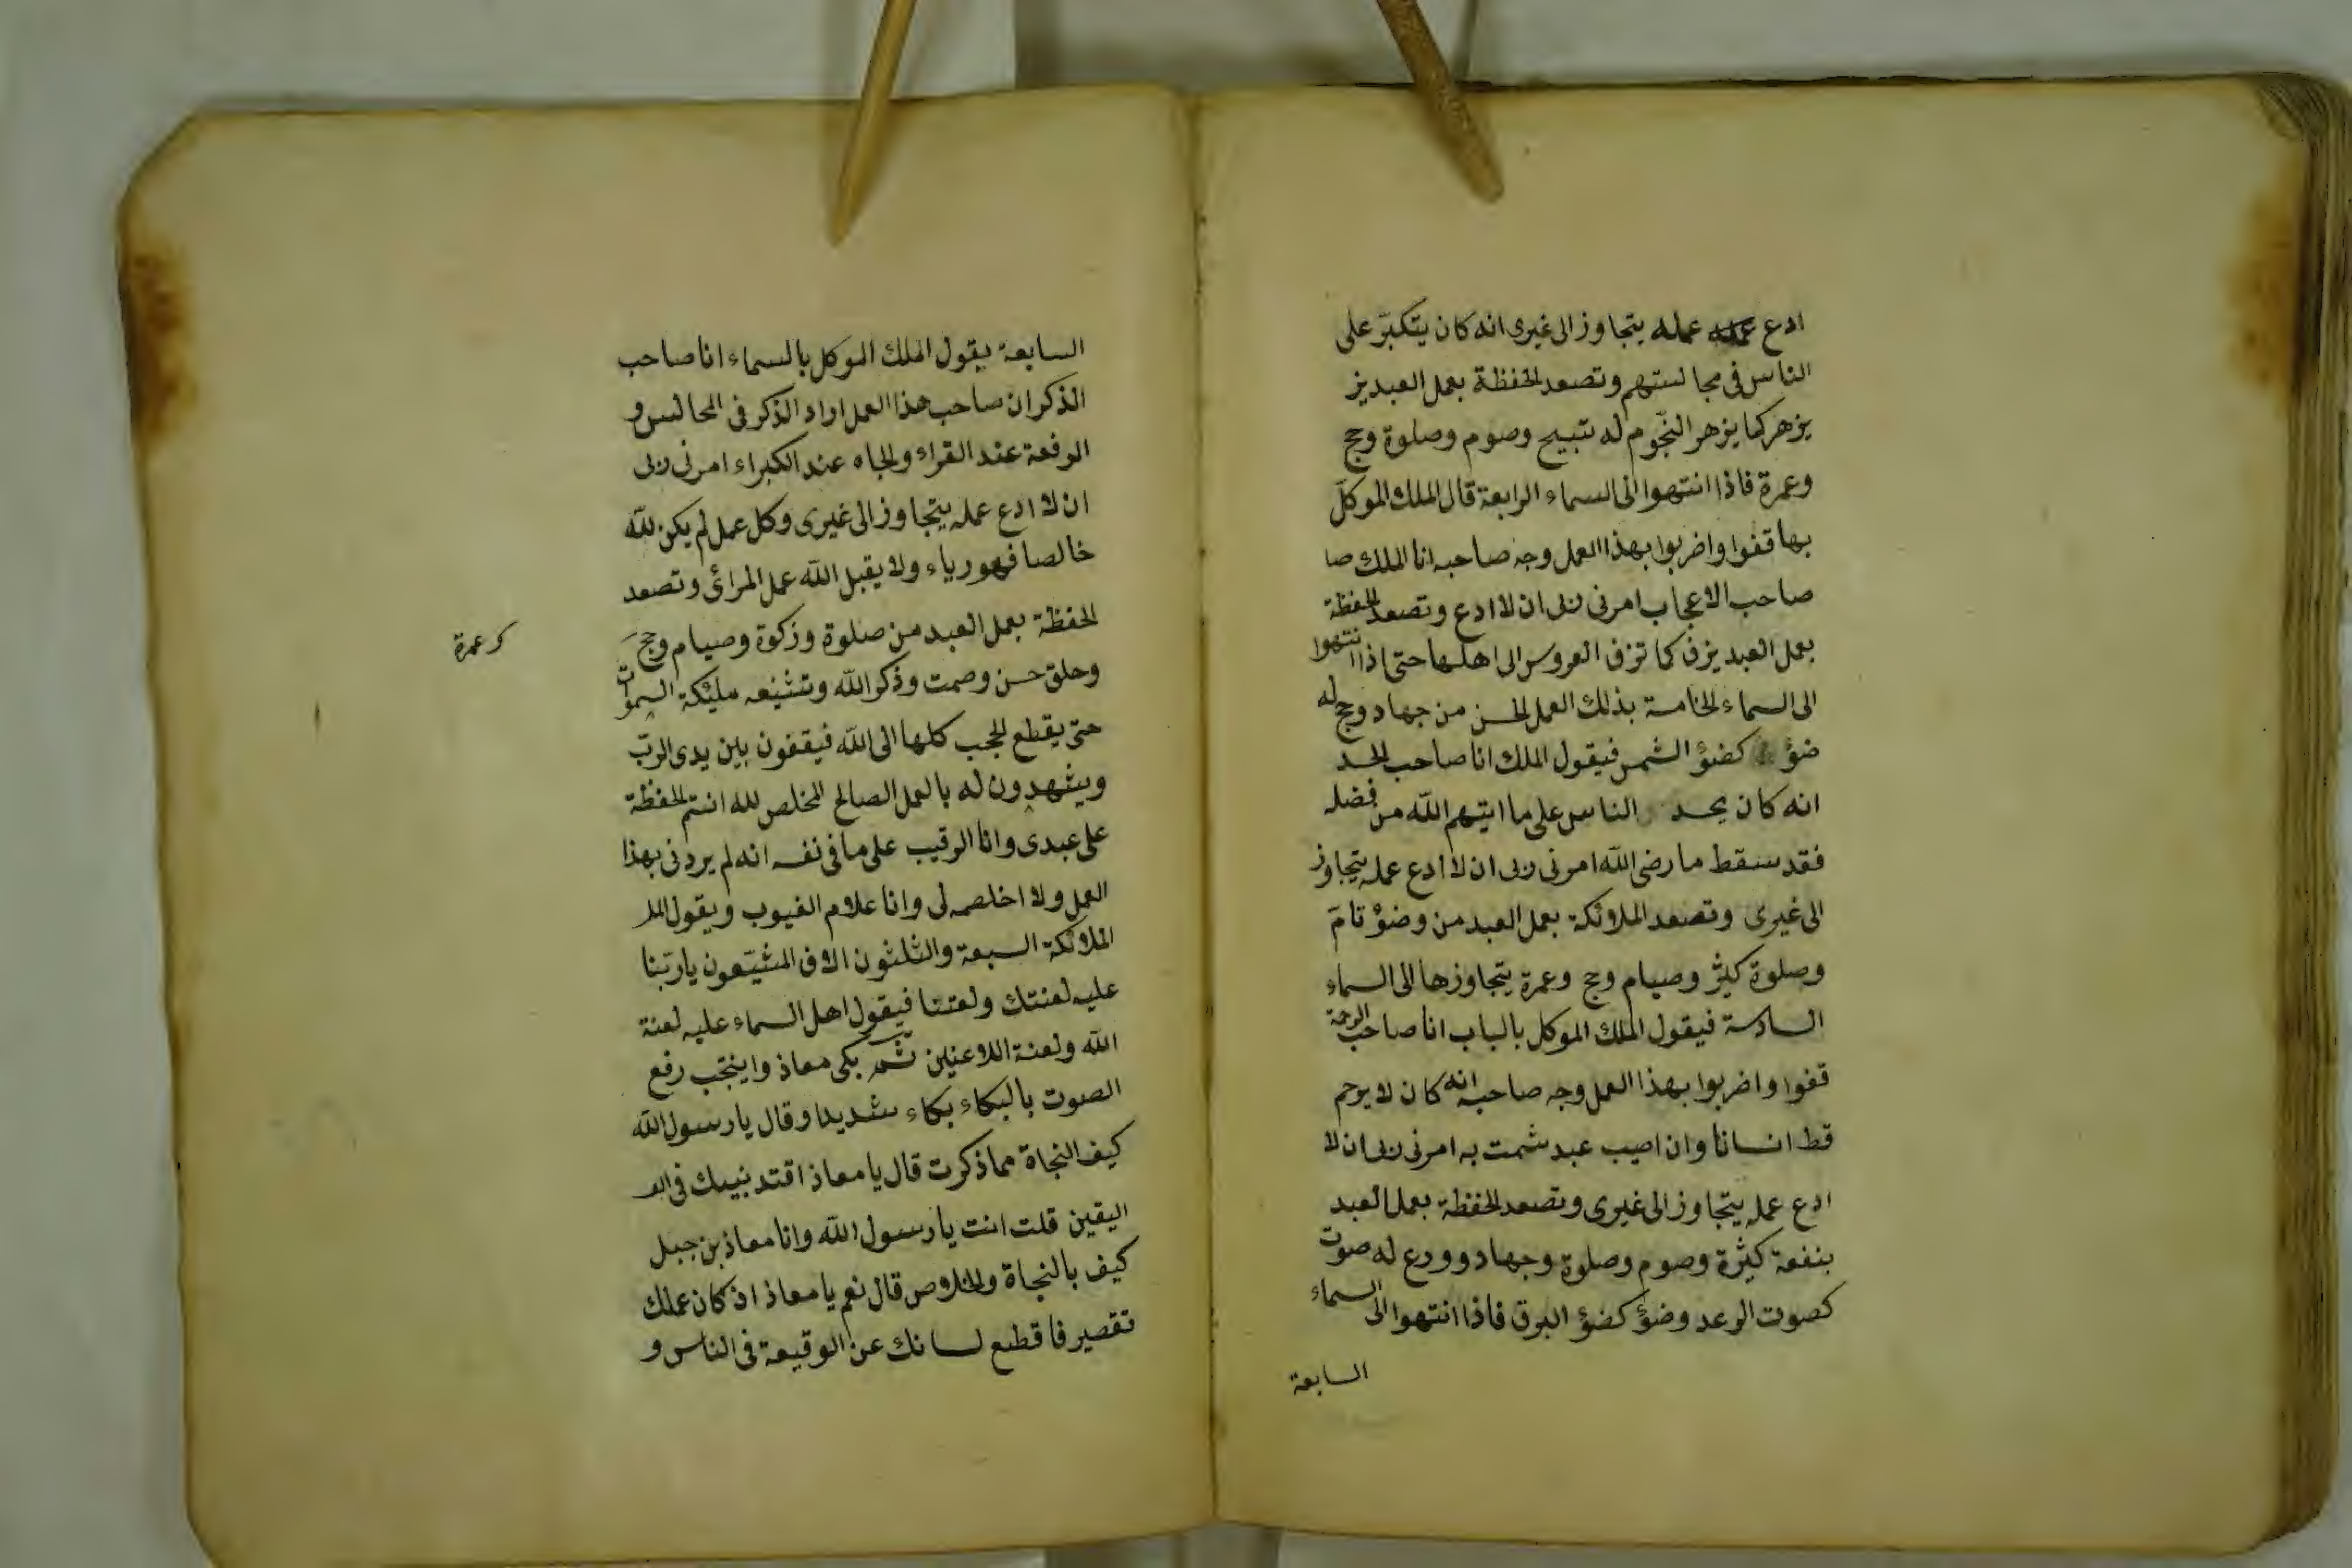 ادع عمله عمله يتجاوز الى غيرى انه كان يتكبّر على
الناس فى مجالستهم وتصعد الحفظة بعمل العبد يز
يزهر كما يزهر النّجوم له تسبيح وصوم وصلوة وحج
وعمرة فاذا انتهوا الى السماء الرابعة قال الملك الموكّل
بها قفوا واضربوا بهذا العمل وجه صاحبه انا الملك صا
صاحب الاعجاب امرنى ربى ان لا ادع وتصعد الحفظة
بعمل العبد يزف كما تزف العروس الى اهلها حتى اذا انتهوا
الى السماء الخامسة بذلك العمل الحسن من جهاد وحج له
ضوؤ كضوؤ الشمس فيقول الملك انا صاحب الحسد
انه كان يحسد الناس على ما اتيهم الله من فضله
فقد سقط ما رضى الله امرنى ربى ان لا ادع عمله يتجاوز
الى غيرى وتصعد الملائكة بعمل العبد من وضوؤ تامّ
وصلوة كثير وصيام وحج وعمرة يتجاوزها الى السماء
السادسة فيقول الملك الموكل بالباب انا صاحب الرحمة
قفوا واضربوا بهذا العمل وجه صاحبه انه كان لا يرحم
قط انسانا وان اصيب عبد شمت به امرنى ربى ان لا
ادع عمله يتجاوز الى غيرى وتصعد الحفظة بعمل العبد
بنفعة كثيرة وصوم وصلوة وجهاد وورع له صوت
كصوت الرعد وضوؤ كضوؤ البرق فاذا انتهوا الى السماء
السابعة
السابعة يقول الملك الموكل بالسماء انا صاحب
الذكر ان صاحب هذا العمل اراد الذكر فى المجالس و
الرفعة عند القراء والجاه عند الكبراء امرنى ربى
ان لا ادع عمله يتجاوز الى غيرى وكل عمل لم يكن لله
خالصا فهو رياء ولا يقبل الله عمل المرائى وتصعد
الحفظة بعمل العبد من صلوة وزكوة وصيام وحج
وعمرة
وحلق حسن وصمت وذكر الله وتشيعه مليكة السموات
حتى يقطع الحجب كلها الى الله فيقفون بين يدى الربّ
ويشهدون له بالعمل الصالح المخلص لله انتم الحفظة
على عبدى وانا الرقيب على ما فى نفسه انه لم يردنى بهذا
العمل ولا اخلصه لى وانا علام الغيوب ويقول المل
الملائكة السبعة والثلثون الاف المشيّعون يا ربّنا
عليه لعنتك ولعنتنا فيقول اهل السماء عليه لعنة
الله ولعنة اللاعنين ثم بكى معاذ وانتحب رفع
الصوت بالبكاء بكاء شديدا وقال يا رسول الله
كيف النجاة مما ذكرت قال يا معاذ اقتد بنبيك فى
اليقين قلت انت يا رسول الله وانا معاذ بن جبل
كيف بالنجاة والخلاص قال نعم يا معاذ اذ كان عملك
تقصير فاقطع لسانك عن الوقيعة فى الناس و